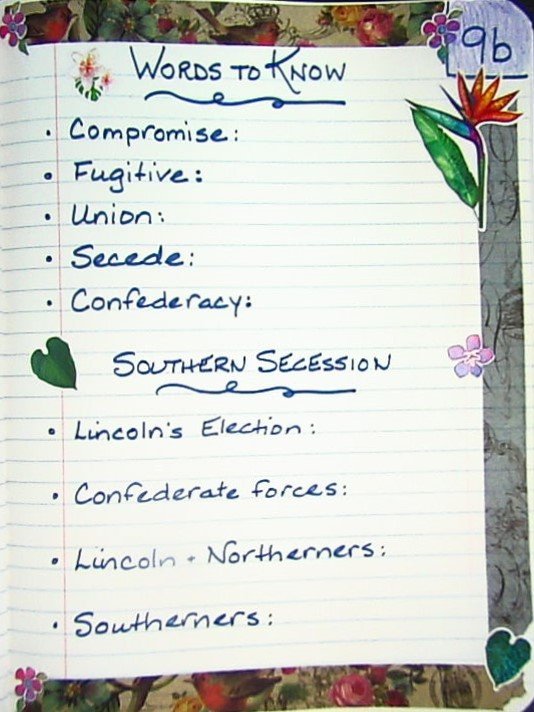 9b
WORDS TO KNOW
• Compromise:
• Fugitive:
• Union:
• Secede:
• Confederacy:
SOUTHERN SECESSION
• Lincoln's Election:
• Confederate forces:
• Lincoln + Northerners:
• Southerners: